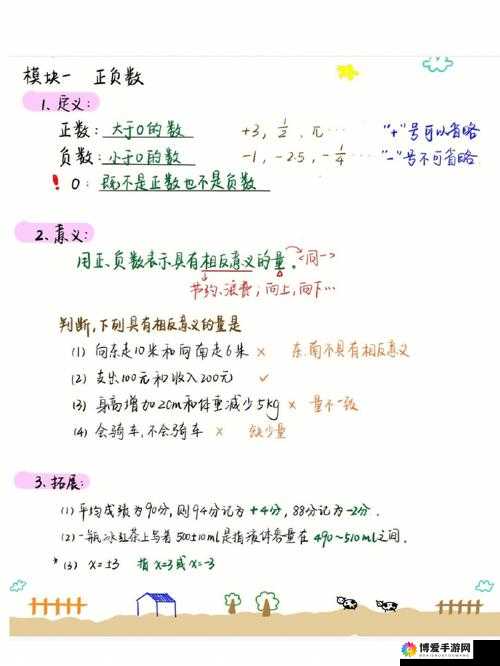 模块一 正负数
1、定义：
正数：大于0的数 +3，1/2，π… "+"号可以省略
负数：小于0的数 -1，-2.5，-1/4 "-"号不可省略
！0：既不是正数也不是负数
2、意义：
用正、负数表示具有相反意义的量。<同一>
节约、浪费；向上，向下…
判断，下列具有相反意义的量是
(1) 向东走10米和向南走6米 × 东、南不具有相反意义
(2) 支出100元和收入200元 ✓
(3) 身高增加2cm和体重减少5kg × 量不一致
(4) 会骑车，不会骑车 × 缺少量
3、拓展：
(1) 平均成绩为90分，则94分记为+4分，88分记为-2分．
(2) 一瓶冰红茶上写着500±10ml是指液体容量在490~510ml之间．
*(3) x=±3 指x=3或x=-3
博爱手游网